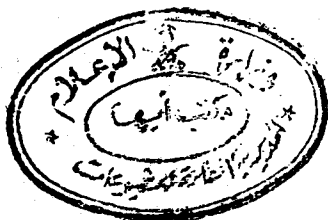 وزارة الإعلام
مكتب أبها
المديرية العامة للمطبوعات